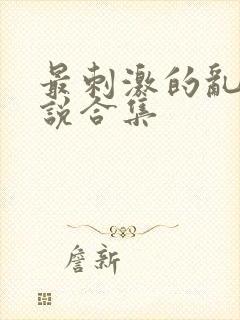 最刺激的亂
說合集
詹新